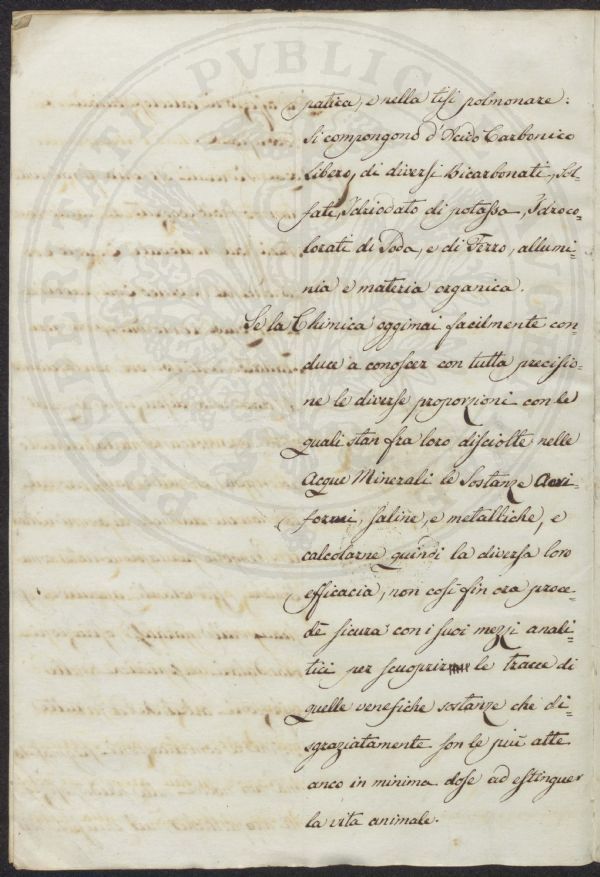 patica, e nella tisi polmonare:
Si compongono d'Acido Carbonico
libero, di diversi Bicarbonati, Sol=
fati, Idriodato di potassa, Idroco=
lorati di Soda, e di Ferro, allumi=
nia e materia organica.
Se la Chimica oggimai facilmente con=
duce a conoscer con tutta precisio=
ne le diverse proporzioni con le
quali stan fra loro disciolte nelle
Acque Minerali le Sostanze Aeri=
formi, saline, e metalliche, e
calcolarne quindi la diversa loro
efficacia, non così fin ora proce=
dè sicura con i suoi mezzi anali=
tici per scuoprir le tracce di
quelle venefiche sostanze che di=
sgraziatamente son le più atte
anco in minima dose ad estinguer
la vita animale.
PVBLICAE
PROSPERITATI